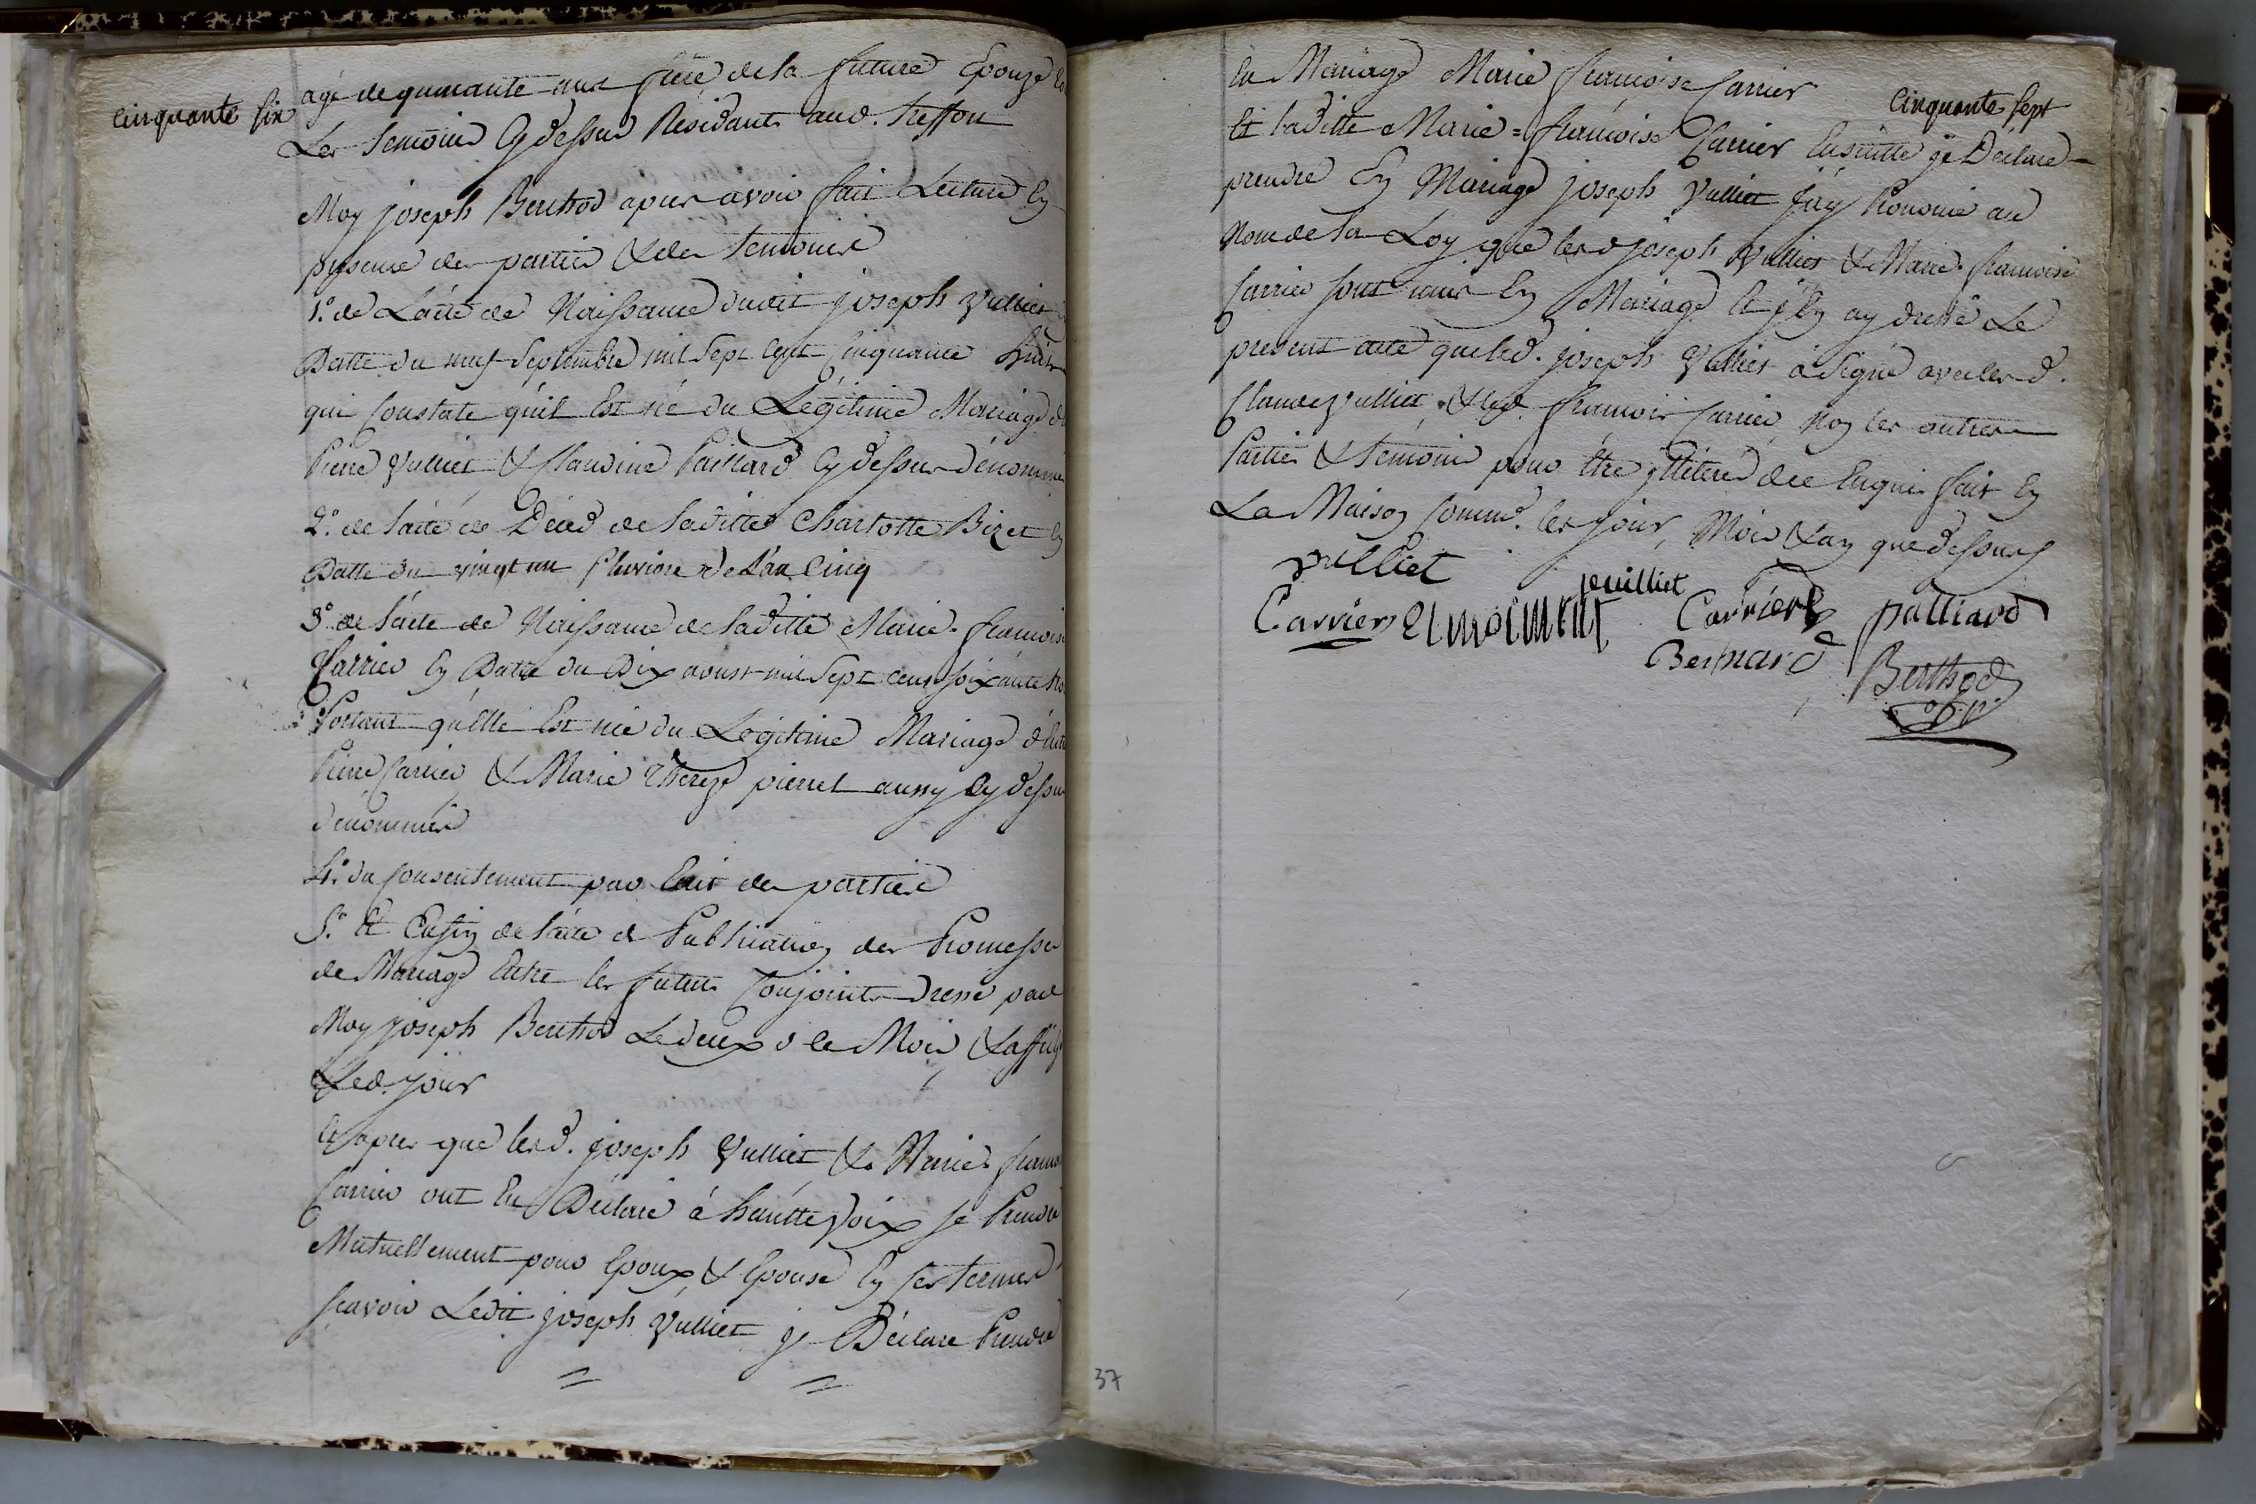 cinquante six
agé de quarante ans frere de la future Epouze
Les temoins Cy dessus Residants aud. Treffon
Moy joseph Berthod apres avoir fait Lecture En
presence des parties & des temoins
1.º de L'acte de Naissance dudit joseph Vulliet
Datte du neuf Septembre mil Sept Cent Cinquante huit
qui Constate qu'il Est né du Légitime Mariage de
Pierre Vulliet & Claudine Paillard Cy dessus dénommés
2.º de l'acte de Décéd de laditte Charlotte Bizet En
Datte du vingt un Pluviose de L'an Cinq
3.º de l'acte de Naissance de laditte Marie-francoise
Carrier En Datte du Dix aoust mil Sept cent soixante
Portant qu'Elle Est née du Legitime Mariage
Pierre Carrier & Marie Thereze pierrel aussy Cy dessus
dénommés
4.º du Consentement par Ecrit des parties
5.º Et Enfin de l'acte de Publication des Promesses
de Mariage Entre les futurs Conjoints dressé par
Moy joseph Berthod Le deux de ce Mois & affiché
Led. jour
Et apres que lesd. joseph Vulliet & Marie franc
Carrier ont Eu Déclaré à hautte voix se Prendre
Mutuellement pour Epoux & Epouse En ses termes
scavoir Ledit joseph Vulliet je Déclare Prendre
cinquante sept
En Mariage Marie françoise Carrier
Et laditte Marie=françoise Carrier Ensuitte je Déclare
prendre En Mariage joseph Vulliet J'ay Prononcé au
Nom de la Loy que lesd joseph Vulliet & Marie francoise
Carrier sont unis En Mariage Et j'En ay dressé Le
present acte que led. joseph Vulliet à Signé avec lesd.
Claude Vulliet & led. francois Carrier, Non les autres
Parties & temoins pour être illiterés de ce Enquis fait En
La Maison Commu.e les jour, Mois & an que dessus
vulliet
vuilliet
Carrier
Carrier
palliard
Bernard
Berthod
37